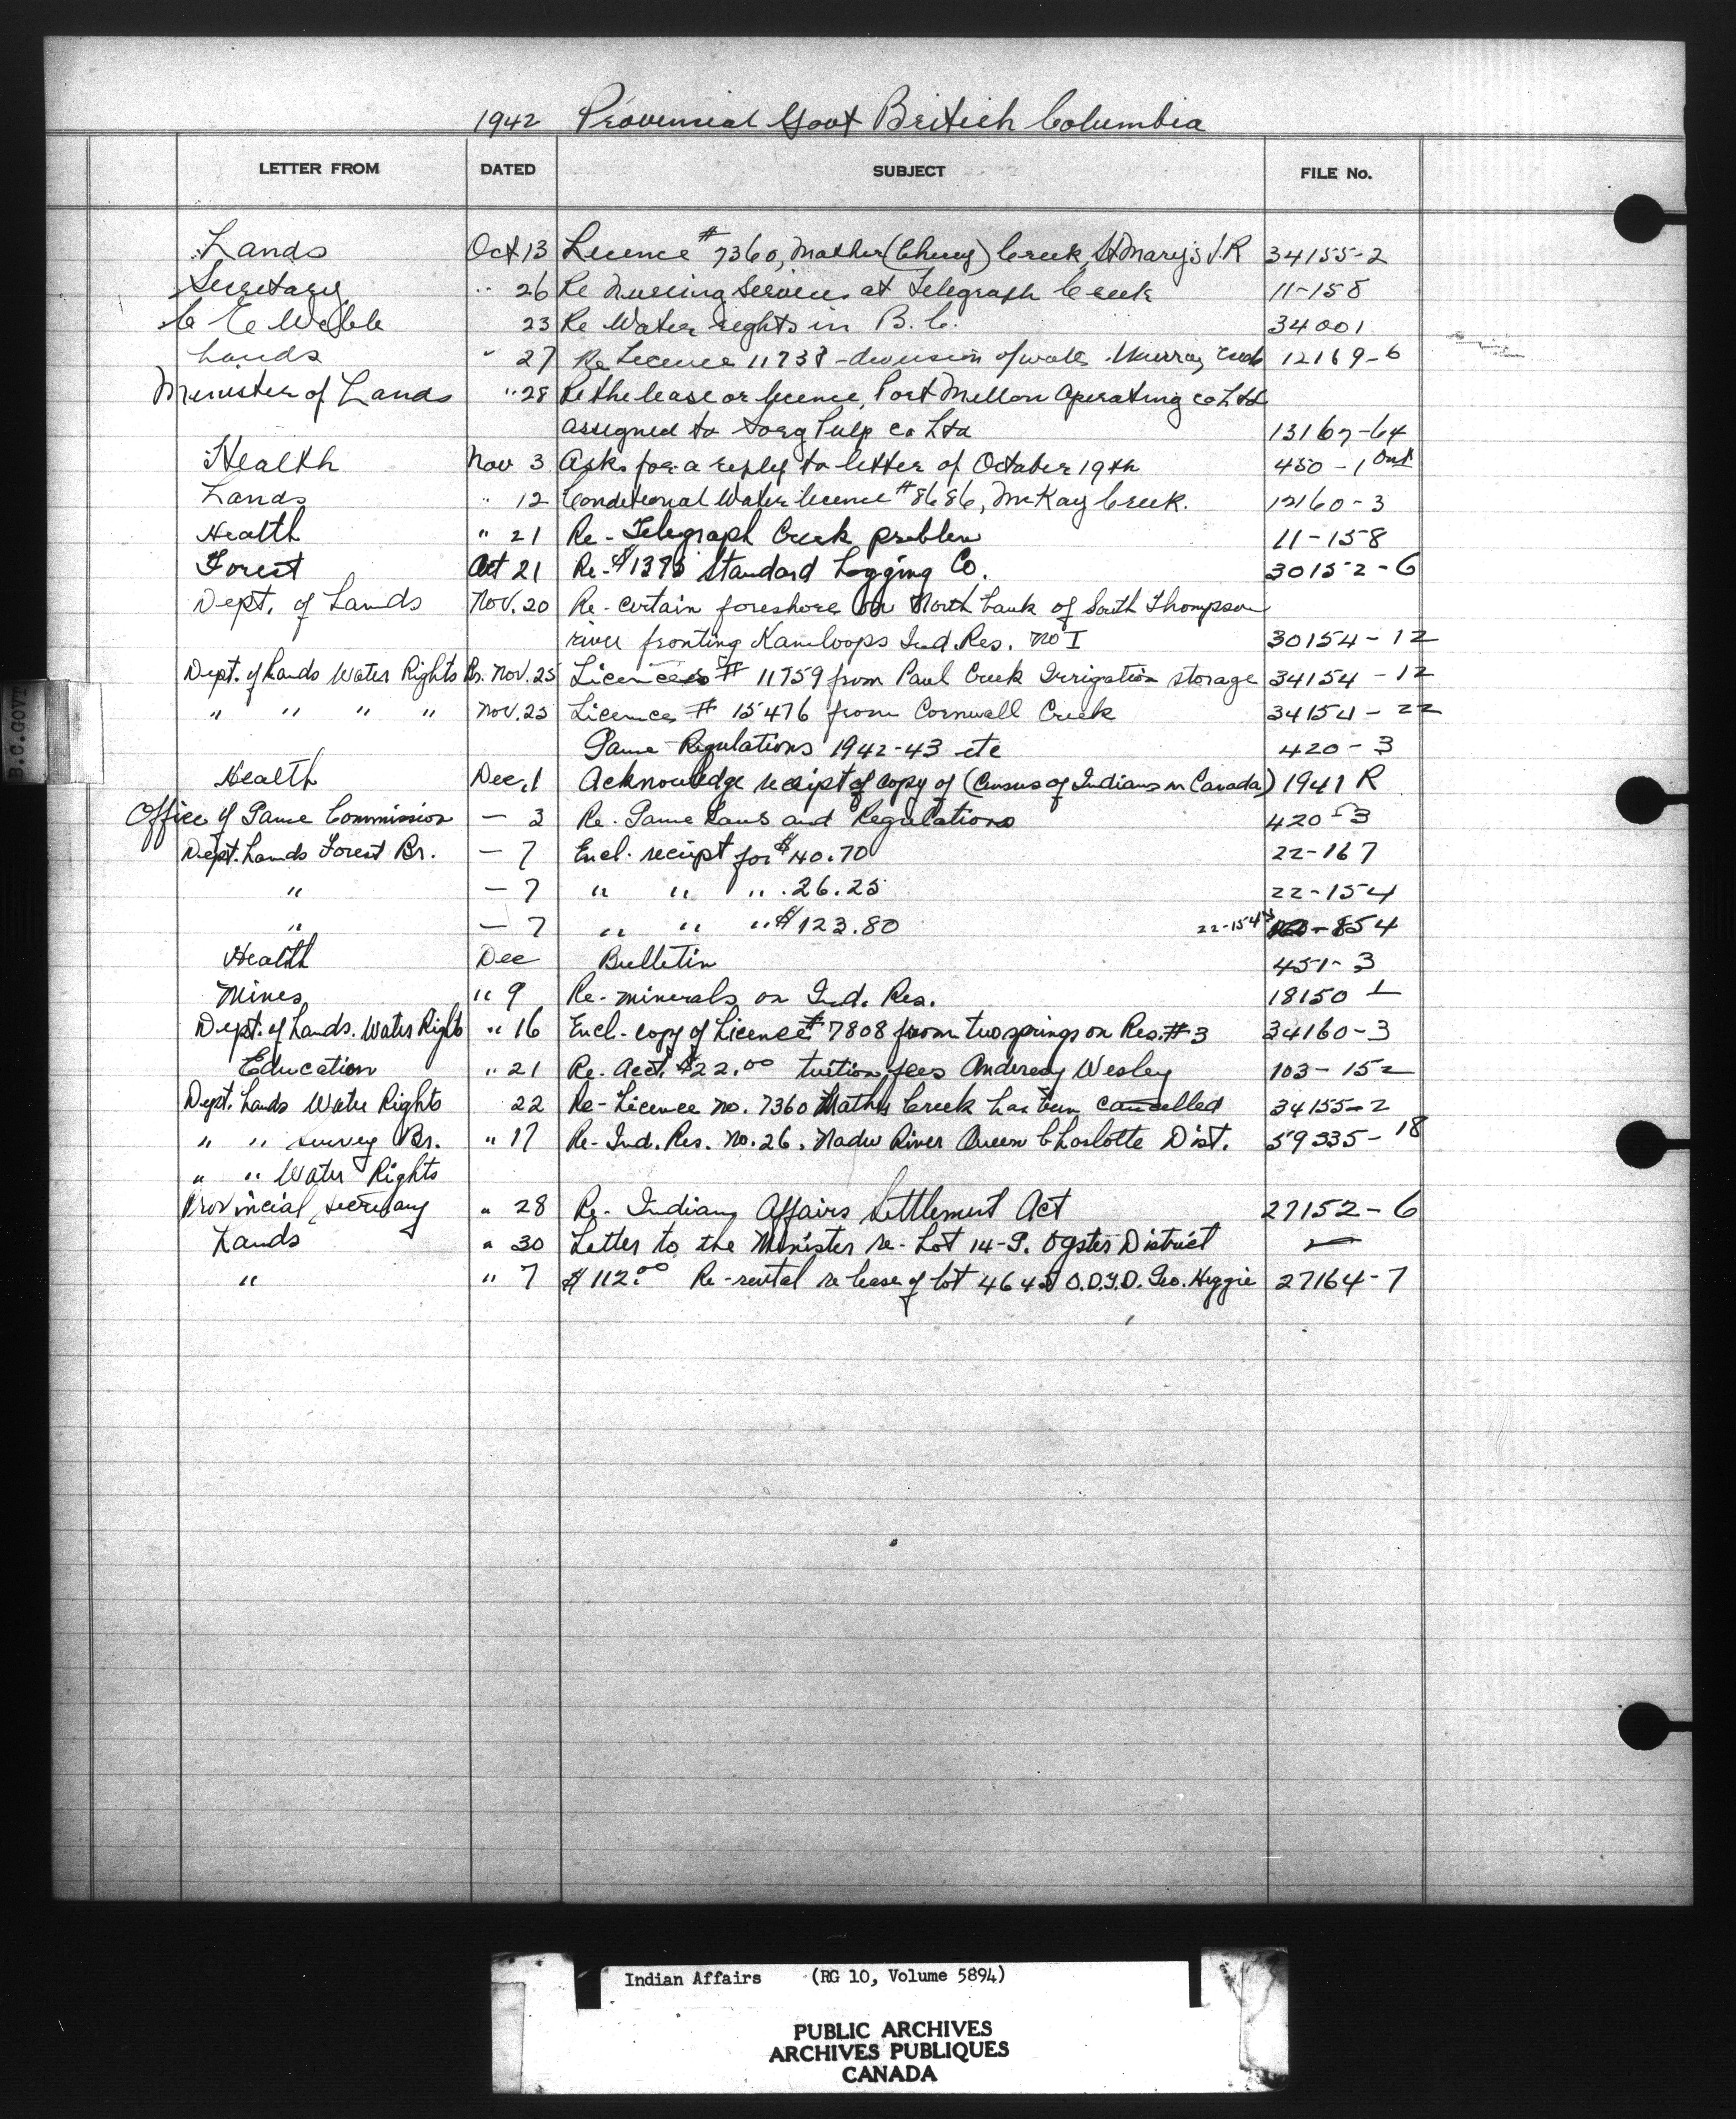 1942 Provincial Govt British Columbia
LETTER FROM DATED SUBJECT FILE No.
Lands Oct 13 Licence # 7360, Mather (Cherry) Creek, St Mary's I.R 34155-2
Secretary " 26 Re Nursing Services at Telegraph Creek 11-158
C E Webb 23 Re Water rights in B.C. 34001
Lands " 27 Re Licence 11738 - diversion of water Murray Creek 12169-6
Minister of Lands " 28 Re the lease or licence, Port Mellon Operating Co Ltd
assigned to Sorg Pulp Co Ltd 13167-64
Health Nov 3 Asks for a reply to letter of October 19th 450-1
Lands " 12 Conditional Water licence # 8686, McKay Creek. 12160-3
Health " 21 Re - Telegraph Creek problem 11-158
Forest Oct 21 Re - Standard Logging Co. 30152-6
Dept. of Lands Nov. 20 Re - certain foreshore on North bank of South Thompson
river fronting Kamloops Ind. Res. No I 30154-12
Dept. of Lands Water Rights Br. Nov. 25 Licences # 11759 from Paul Creek Irrigation storage 34154-12
" " " " Nov. 25 Licences # 15476 from Cornwall Creek 34154-22
Game Regulations 1942-43 etc 420-3
Health Dec. 1 Acknowledge receipt of copy of (Census of Indians in Canada) 1941 R
Office of Game Commission — 3 Re. Game Laws and Regulations 420-3
Dept. Lands Forest Br. — 7 Encl. receipt for $40.70 22-167
" — 7 " " " 26.25 22-154
" — 7 " " " $123.80 22-154
Health Dec Bulletin 451-3
Mines " 9 Re - minerals on Ind. Res. 18150-1
Dept. of Lands. Water Rights " 16 Encl. copy of Licence # 7808 from two springs on Res. # 3 34160-3
Education " 21 Re. Acct. $22.00 tuition fees Wesley 103-152
Dept. Lands Water Rights 22 Re - Licence No. 7360 Mather Creek has been cancelled 34155-2
" " Survey Br. " 17 Re - Ind. Res. No. 26. Nadu River Queen Charlotte Dist. 59335-18
" " Water Rights
Provincial Secretary " 28 Re - Indians Affairs Settlement Act 27152-6
Lands " 30 Letter to the Minister re - Lot 14-G. Oyster District —
" " 7 $112.00 Re - rental re lease of lot 4645 O.D.Y.D. Geo. Heggie 27164-7
B.C. GOVT
Indian Affairs (RG 10, Volume 5894)
PUBLIC ARCHIVES
ARCHIVES PUBLIQUES
CANADA